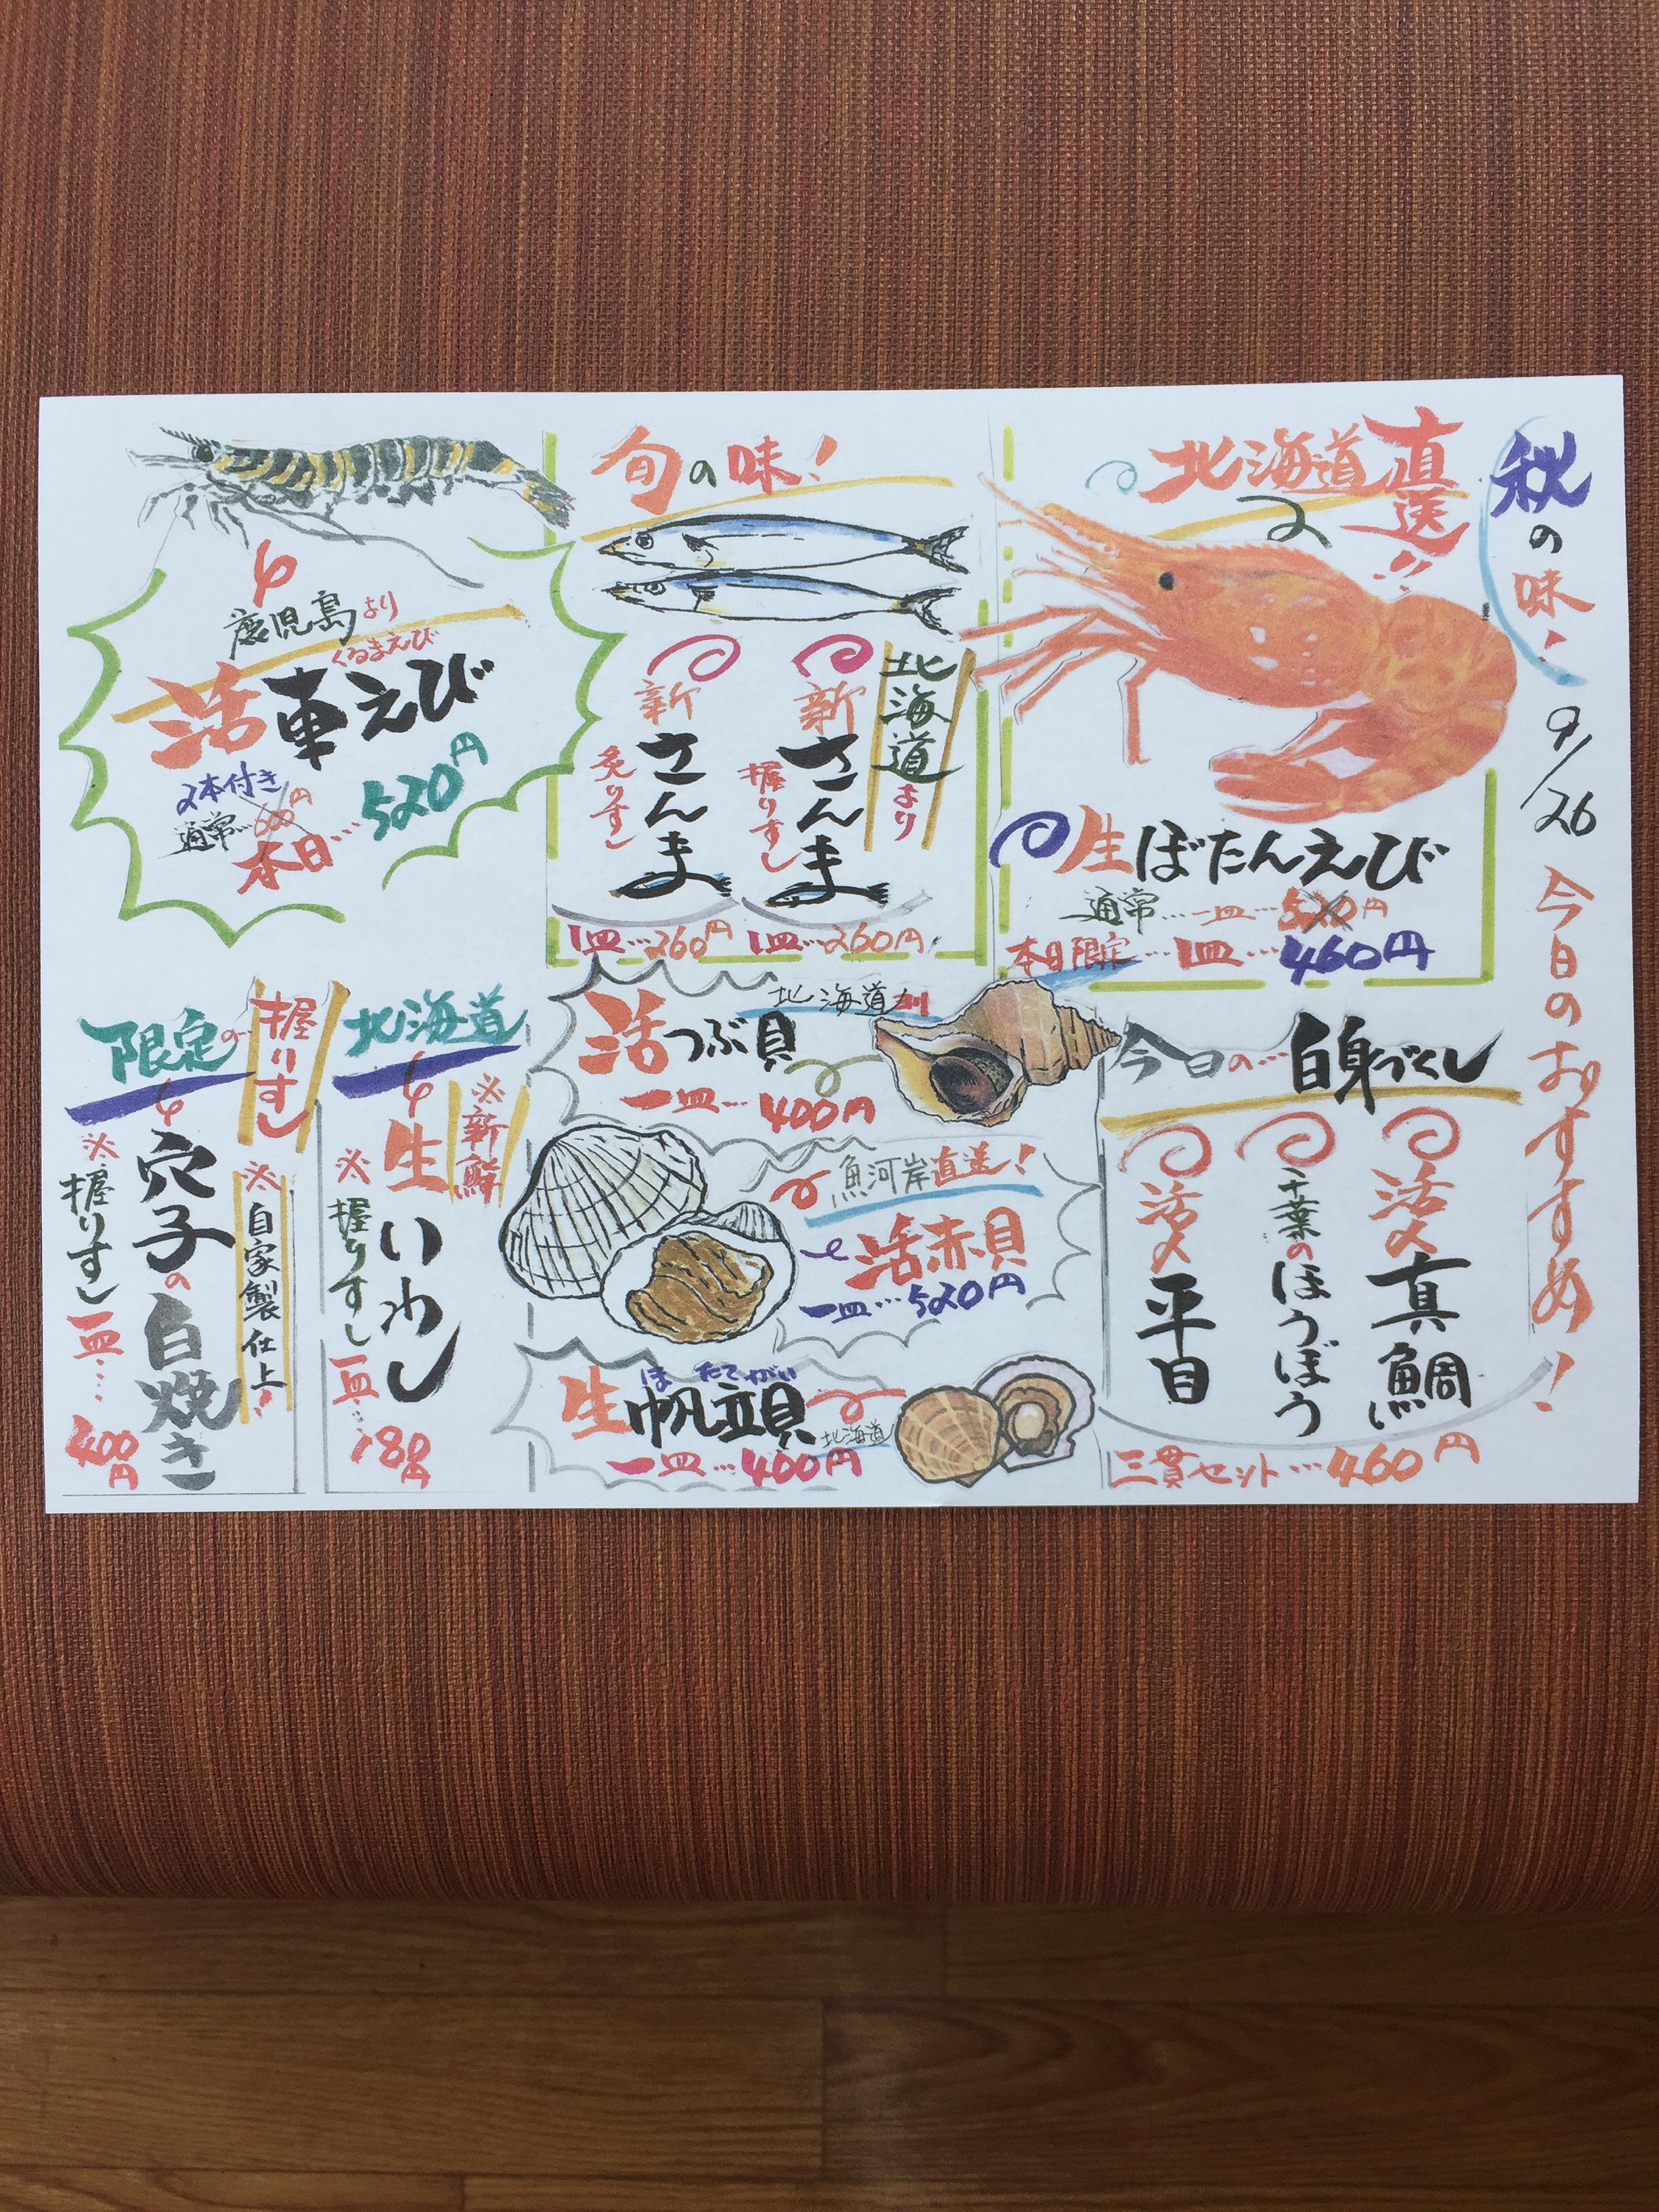 秋の味!
9/26
今日のおすすめ!
北海道直送!!
生ぼたんえび
通常…一皿…520円
本日限定…1皿…460円
旬の味!
北海道より
新さんま
握りすし
1皿…260円
新さんま
炙りすし
1皿…260円
鹿児島より
くるまえび
活車えび
2本付き
通常…600円
本日…520円
今日の…白身づくし
活〆真鯛
千葉のほうぼう
活〆平目
三貫セット…460円
北海道
活つぶ貝
一皿…400円
魚河岸直送!
活赤貝
一皿…520円
ほたてがい
生帆立貝
北海道
一皿…400円
北海道
※新鮮
生いわし
※握りすし
一皿…180円
限定の…握りすし
※自家製仕上!
穴子の白焼き
※握りすし
一皿…400円